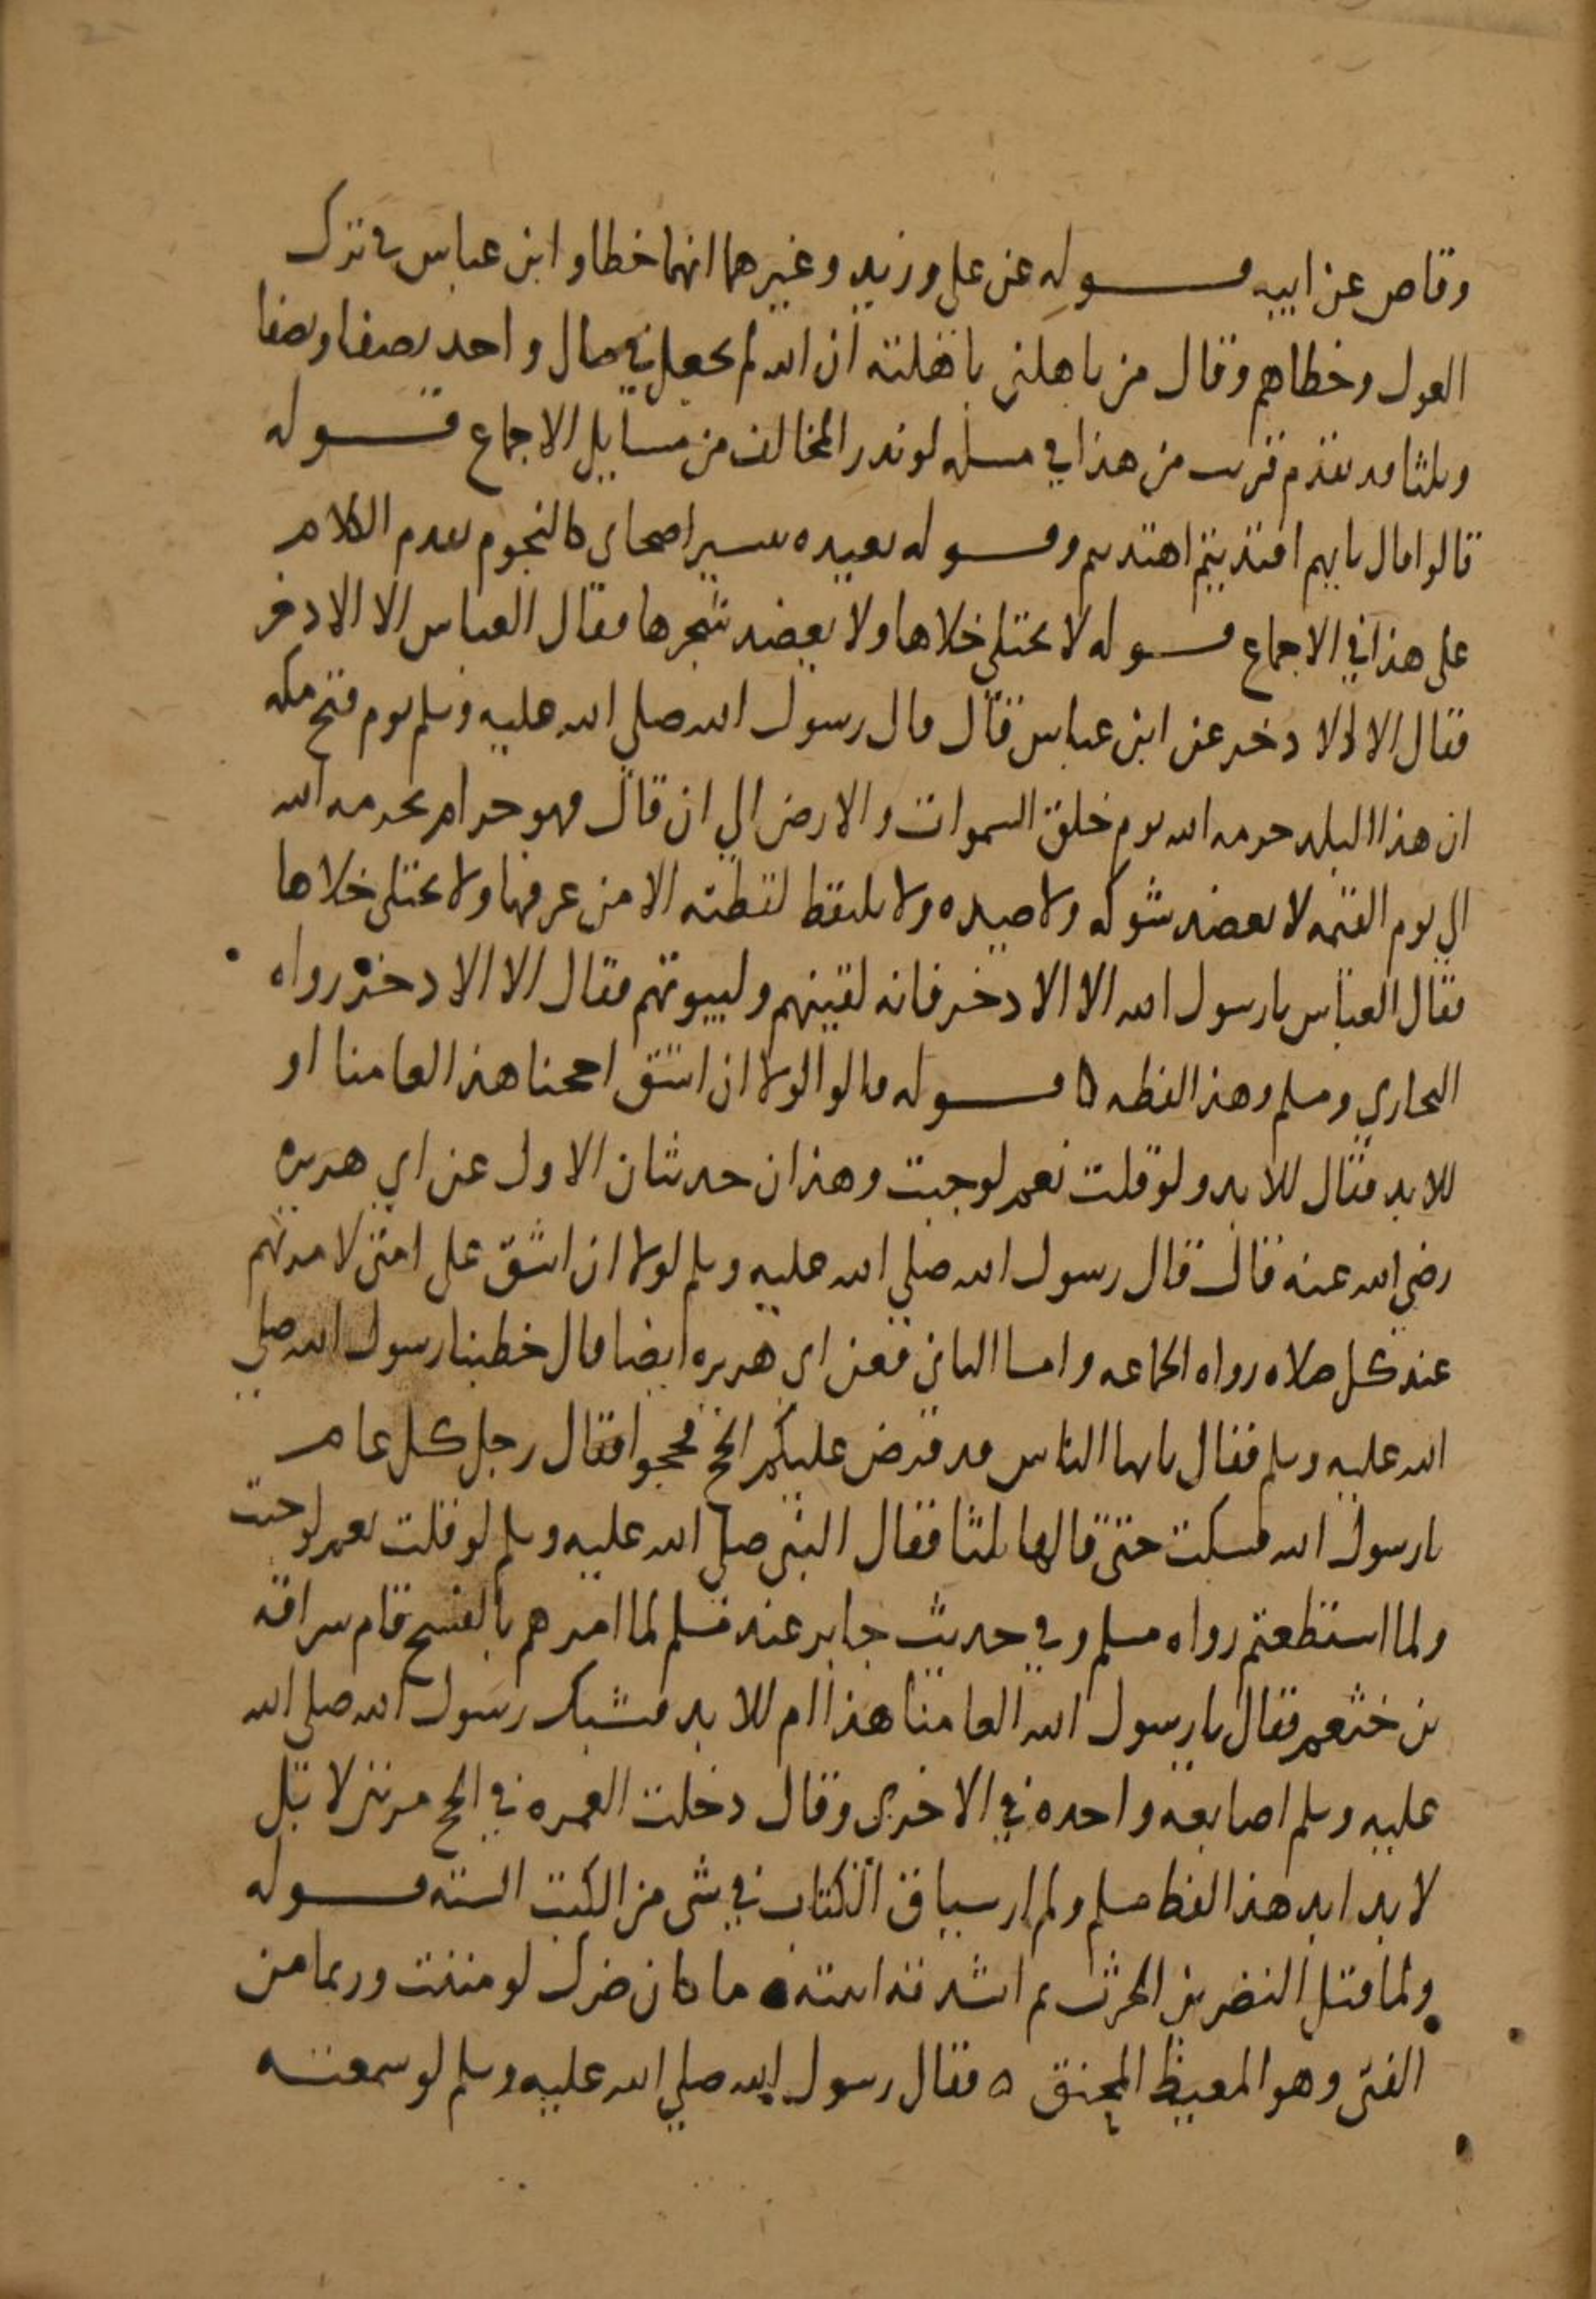 وقاص عن ابيه قوله عن على وزيد وغيرهما انهما خطاو ابن عباس فى ترك
العول وخطاهم وقال من باهلنى باهلته ان الله لم يجعل في مال واحد نصفا ونصفا
وثلثا قد تقدم قريب من هذا في مسله لو ندر المخالف من مسايل الاجماع قوله
قالوا قال بايهم اقتديتم اهتديتم وقوله بعيده بيسير اصحابى كالنجوم تقدم الكلام
على هذا في الاجماع قوله لا يختلى خلاها ولا يعضد شجرها فقال العباس الا الادخر
فقال الا الادخر عن ابن عباس قال قال رسول الله صلى الله عليه وسلم يوم فتح مكه
ان هذا البلد حرمه الله يوم خلق السموات والارض الي ان قال فهو حرام بحرمه الله
الى يوم القيمه لا يعضد شوكه ولا صيده ولا يلتقط لقطته الا من عرفها ولا يختلى خلاها
فقال العباس يا رسول الله الا الادخر فانه لقينهم ولبيوتهم فقال الا الادخر رواه
البخاري ومسلم وهذا لفظه ه قوله قالوا لولا ان اشق احجنا هذا لعامنا او
للابد فقال للابد ولو قلت نعم لوجبت وهذان حديثان الاول عن ابي هريره
رضي الله عنه قال قال رسول الله صلي الله عليه وسلم لولا ان اشق على امتى لامرتهم
عند كل صلاه رواه الجماعه واما الثانى فعن ابى هريره ايضا قال خطبنا رسول الله صلي
الله عليه وسلم فقال يايها الناس قد فرض عليكم الحج فحجوا فقال رجل كل عام
يا رسول الله فسكت حتى قالها ثلثا فقال النبى صلى الله عليه وسلم لو قلت نعم لوجبت
ولما استطعتم رواه مسلم وفي حديث جابر عند مسلم لما امرهم بالفسح قام سراقه
بن خثعم فقال يا رسول الله العامنا هذا ام للابد فشبك رسول الله صلى الله
عليه وسلم اصابعه واحده في الاخرى وقال دخلت العمره في الحج مرتين لا بل
لابد ابد هذا لفظ مسلم ولم ار سياق الكتاب في شى من الكتب السته قوله
ولما قتل النضر بن الحرث ثم انشدته ابنته ما كان ضرك لو مننت وربما من
الفتى وهو المغيظ المحنق ه فقال رسول الله صلي الله عليه وسلم لو سمعته